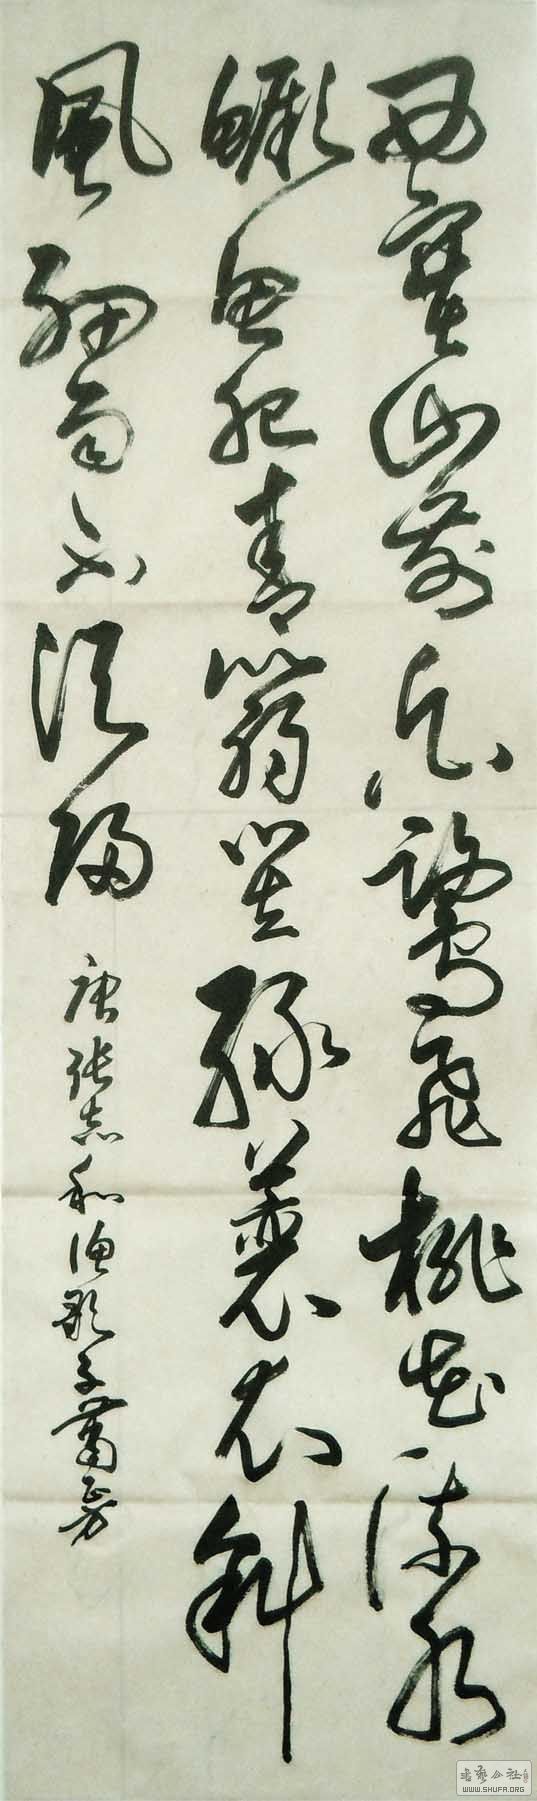 西塞山前白鷺飛桃花流水
鱖魚肥青箬笠綠蓑衣斜
風細雨不須歸
唐張志和漁歌子蕭芳
WWW.SHUFA.ORG